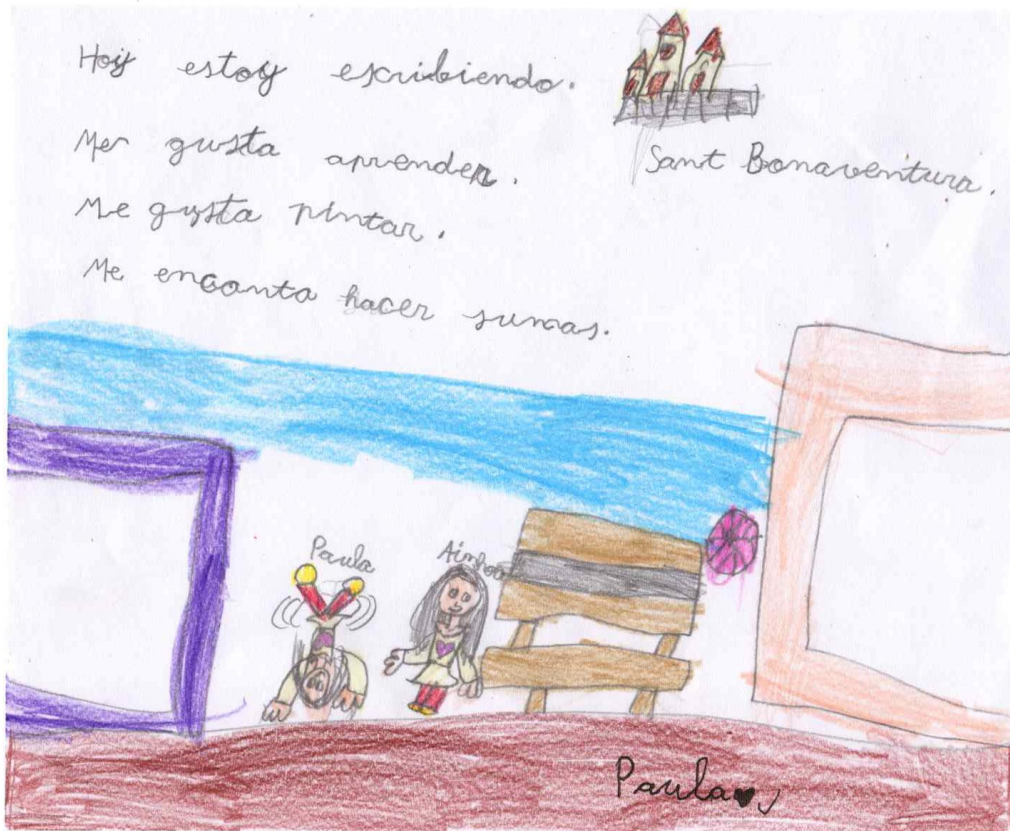 Hoy estoy escribiendo.
Me gusta aprender.
Me gusta pintar.
Me encanta hacer sumas.
Sant Bonaventura.
Paula
Paula